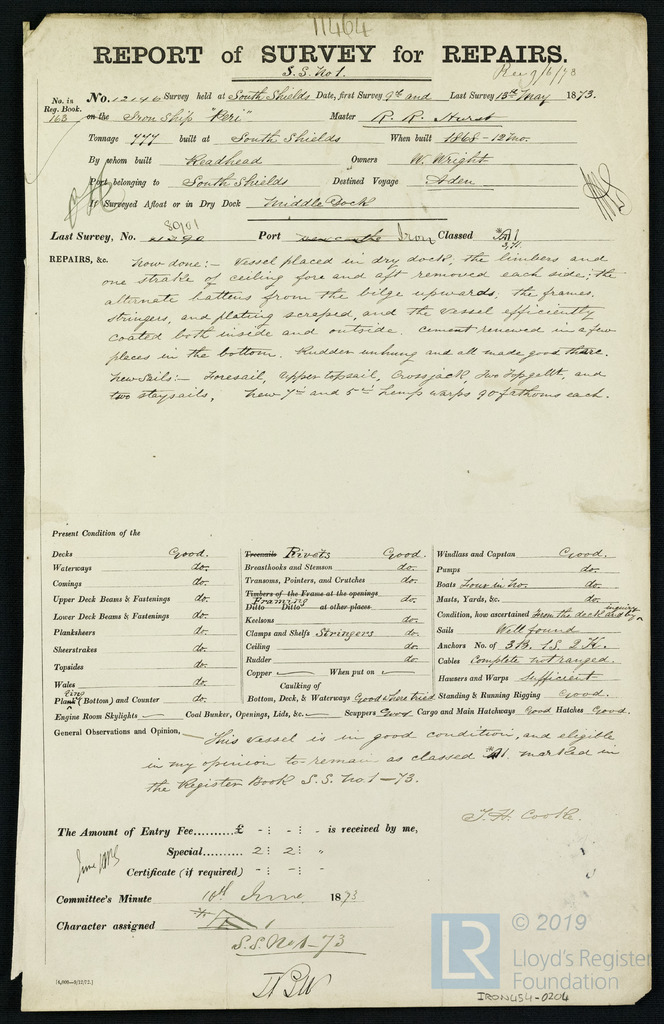 11464
REPORT of SURVEY for REPAIRS.
S.S. No 1. Rec 9/6/73
No. in Reg. Book. No. 12146 Survey held at South Shields Date, first Survey 9th and Last Survey 13th May 1873.
168 on the Iron Ship "Peri" Master R. R. Hurst
Tonnage 777 built at South Shields When built 1868-12mo.
By whom built Readhead Owners W. Wright
Port belonging to South Shields Destined Voyage Aden
If Surveyed Afloat or in Dry Dock Middle Dock
80901
Last Survey, No. Port Iron Classed
REPAIRS, &c. Now done:- Vessel placed in dry dock, the limbers and
one strake of ceiling fore and aft removed each side; the
alternate battens from the bilge upwards; the frames,
stringers, and plating scraped, and the vessel efficiently
coated both inside and outside. Cement renewed in a few
places in the bottom. Rudder unhung and all made good there.
New Sails:- Foresail, Upper topsail, Crossjack, Two Topgallt, and
two staysails, New 7in and 5in hemp warps 90 fathoms each.
Present Condition of the
Decks Good. Treenails Rivets Good. Windlass and Capstan Good.
Waterways do. Breasthooks and Stemson do. Pumps do.
Comings do. Transoms, Pointers, and Crutches do. Boats Four in No. do.
Upper Deck Beams & Fastenings do. Timbers of the Frame at the openings Framing Masts, Yards, &c. do.
Lower Deck Beams & Fastenings do. Ditto Ditto at other places do. Condition, how ascertained From the deck and by inquiry
Planksheers do. Keelsons do. Sails Well found
Sheerstrakes do. Clamps and Shelfs Stringers do. Anchors No. of 3B. 1S. 2K.
Topsides do. Ceiling do. Cables Complete not ranged.
Wales do. Rudder do. Hawsers and Warps Sufficient
Copper When put on
Plank ting (Bottom) and Counter do. Caulking of Bottom, Deck, & Waterways Good where tried Standing & Running Rigging Good.
Engine Room Skylights Coal Bunker, Openings, Lids, &c. Scuppers Good Cargo and Main Hatchways Good Hatches Good.
General Observations and Opinion, This vessel is in good condition, and eligible
in my opinion to remain as classed A1. marked in
the Register Book S.S. No 1-73.
T. H. Cooke.
The Amount of Entry Fee..........£ - : - : - is received by me,
Special.......... 2 : 2 : "
Certificate (if required) - : - : -
Committee's Minute 10th June 1873
Character assigned
S.S. No 1-73
[4,000—9/12/72.]
LR © 2019
Lloyd's Register
Foundation
IRON454-0204